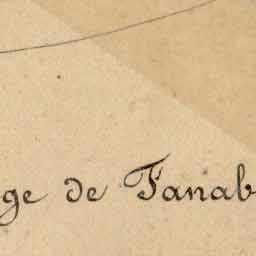 ge de Tanab